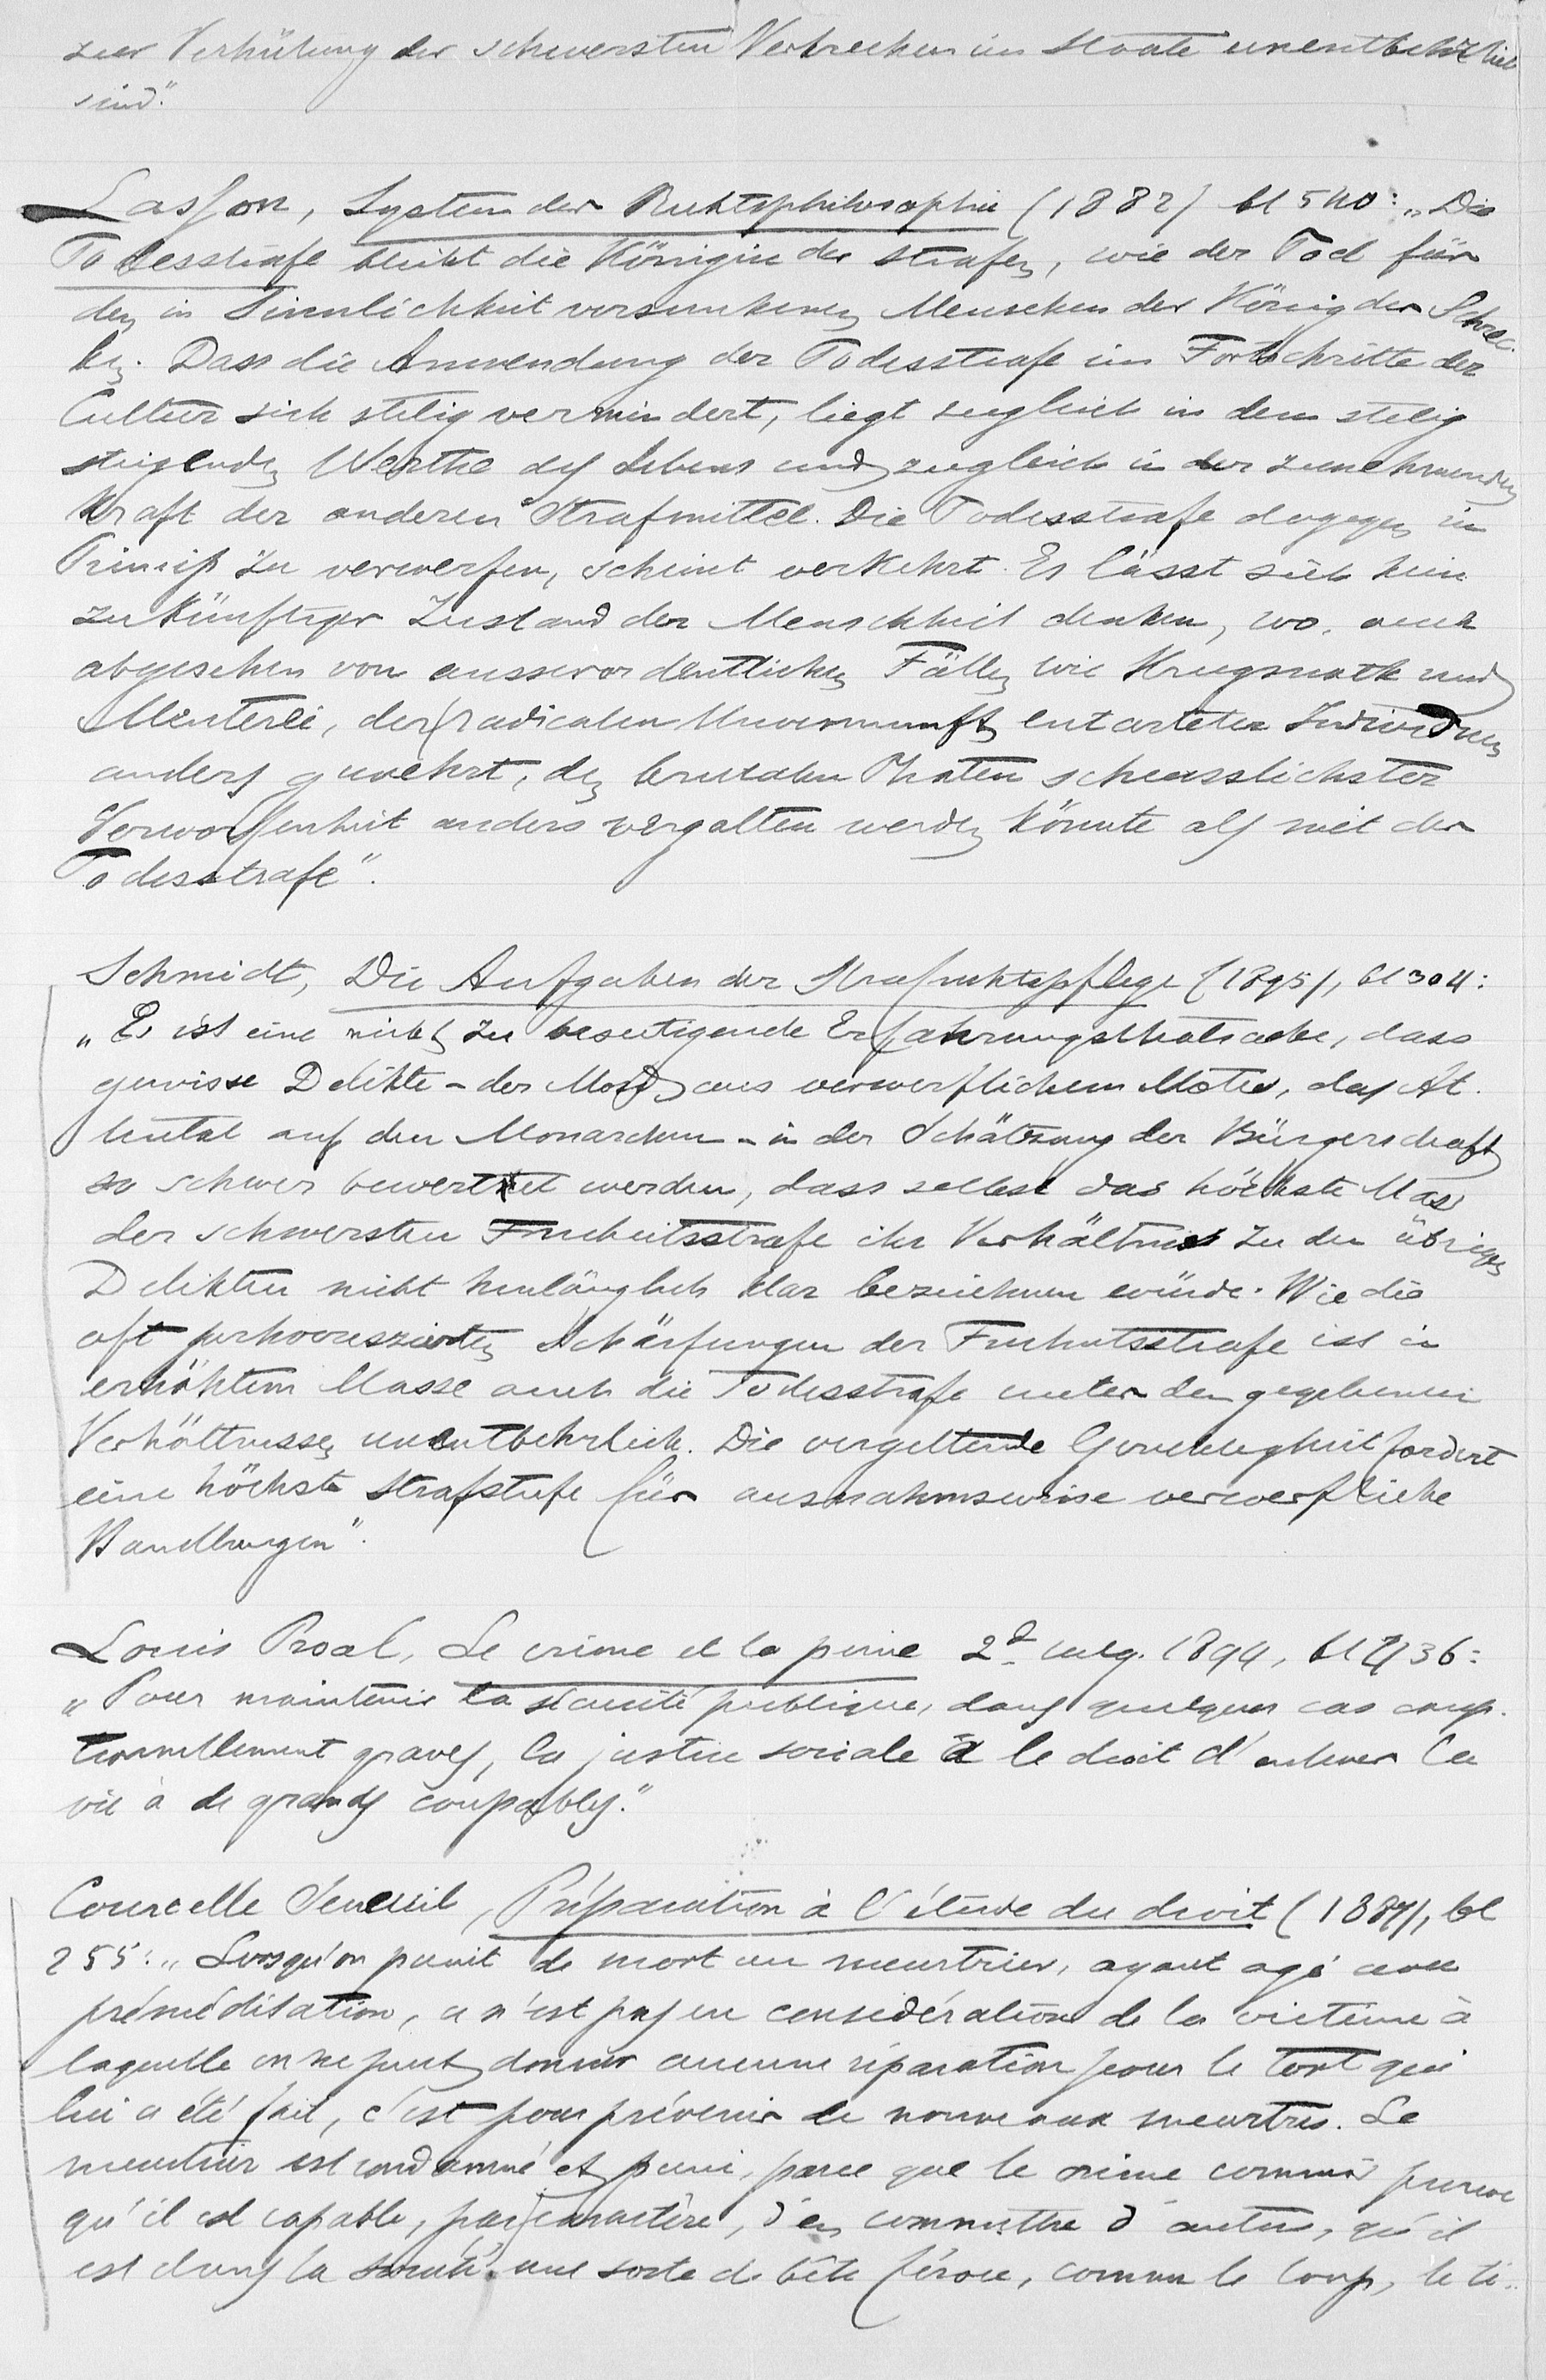 zur Verhütung der schwersten Verbrechen im Staate unentbehrlich
sind."
Lasson, System der Rechtsphilosophie (1882) bl 540: „Die
Todesstrafe bleibt die Königin der Strafen, wie der Tod für
den in Sinnlichkeit versunkenen Menschen der König der Schrec-
ken. Dass die Anwendung der Todesstrafe im Fortschritte der
Cultur sich stetig vermindert, liegt zugleich in dem stetig
steigenden Werthe des Lebens und zugleich in der zunehmenden
Kraft der anderen Strafmittel. Die Todesstrafe dagegen im
Princip zu verwerfen, scheint verkehrt. Es lässt sich kein
zukünftiger Zustand der Menschheit denken, wo, auch
abgesehen von ausserordentlichen Fällen wie Kriegsnoth und
Meuterei, der radicalen Unvernunft entarteter Individuen
anders gewehrt, den brutalen Thaten scheusslichster
Verworfenheit anders vergolten werden könnte als mit der
Todesstrafe".
Schmidt, Die Aufgaben der Strafrechtspflege (1895), bl 304:
„Es ist eine nicht zu beseitigende Erfahrungsthatsache, dass
gewisse Delikte – der Mord aus verwerflichem Motiv, das At-
tentat auf den Monarchen – in der Schätzung der Bürgerschaft
so schwer bewertet werden, dass selbst das höchste Mass
der schwersten Freiheitsstrafe ihr Verhältnis zu den übrigen
Delikten nicht hinlänglich klar bezeichnen würde. Wie die
oft perhorreszierten Schärfungen der Freiheitsstrafe ist in
erhöhtem Masse auch die Todesstrafe unter den gegebenen
Verhältnissen unentbehrlich. Die vergeltende Gerechtigkeit fordert
eine höchste Strafstufe für ausnahmsweise verwerfliche
Handlungen".
Louis Proal, Le crime et la peine 2d uitg. 1894, bl 436:
„Pour maintenir la sécurité publique, dans quelques cas excep-
tionnellement graves, la justice sociale a le droit d'enlever la
vie à de grands coupables."
Courcelle Seneuil, Préparation à l'étude du droit (1887), bl
255: „Lorsqu'on punit de mort un meurtrier, ayant agi avec
préméditation, ce n'est pas en considération de la victime à
laquelle on ne peut donner aucune réparation pour le tort qui
lui a été fait, c'est pour prévenir de nouveaux meurtres. Le
meurtrier est condamné et puni, parce que le crime commis prouve
qu'il est capable, par caractère, d'en commettre d'autres, qu'il
est dans la société une sorte de bête féroce, comme le loup, le ti-